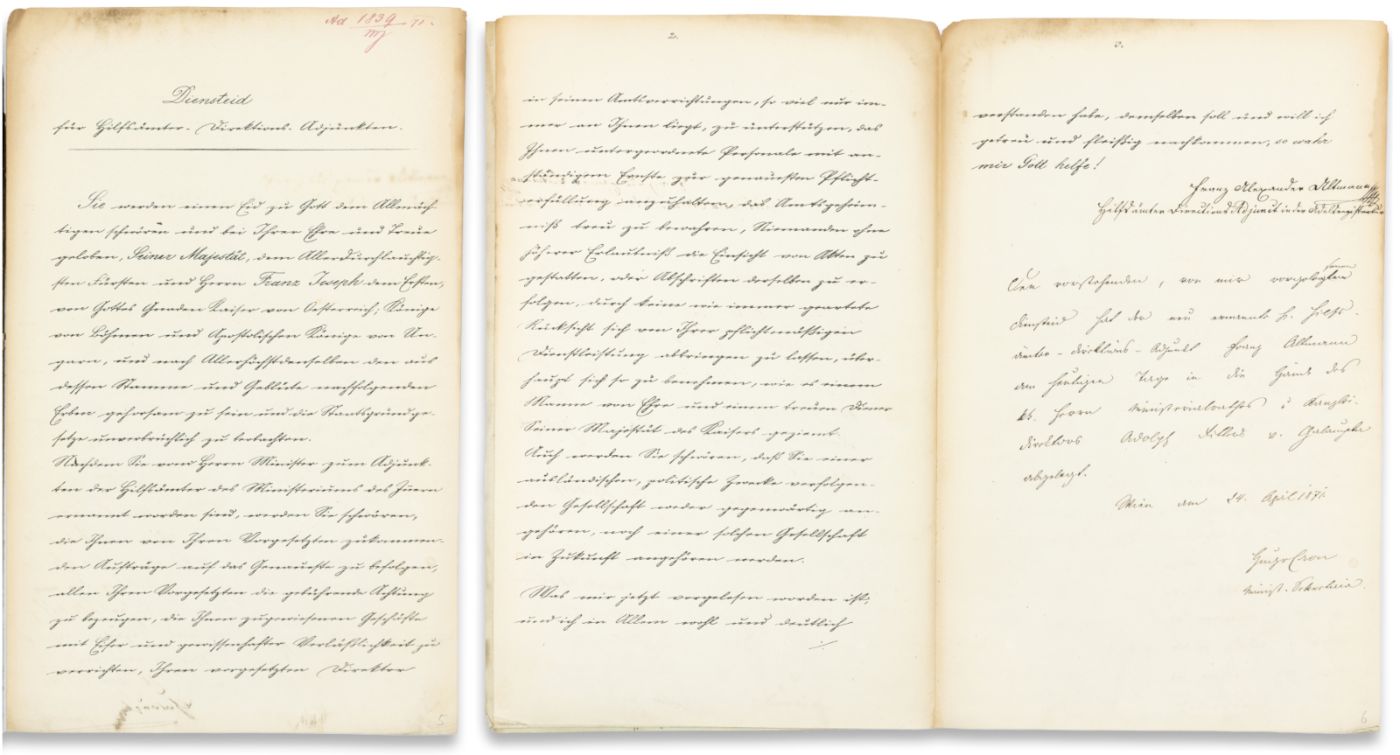 Ad 1839 71.
MJ
Diensteid
für Hilfsämter-Direktions-Adjunkten.
Sie werden einen Eid zu Gott dem Allmäch-
tigen schwören und bei Ihrer Ehre und Treue
geloben, Seiner Majestät, dem Allerdurchlauchtig-
sten Fürsten und Herrn Franz Joseph dem Ersten,
von Gottes Gnaden Kaiser von Oesterreich, Könige
von Böhmen und Apostolischen Könige von Un-
garn, und nach Allerhöchstdenselben den aus
dessen Stamme und Geblüte nachfolgenden
Erben gehorsam zu sein und die Staatsgrundge-
setze unverbrüchlich zu beobachten.
Nachdem Sie vom Herrn Minister zum Adjunk-
ten der Hilfsämter des Ministeriums des Innern
ernannt worden sind, werden Sie schwören,
die Ihnen von Ihren Vorgesetzten zukommen-
den Aufträge auf das Genaueste zu befolgen,
allen Ihren Vorgesetzten die gebührende Achtung
zu bezeugen, die Ihnen zugewiesenen Geschäfte
mit Eifer und gewissenhafter Verläßlichkeit zu
verrichten, Ihren vorgesetzten Direktor
5
2.
in seinen Amtsverrichtungen, so viel nur im-
mer an Ihnen liegt, zu unterstützen, das
Ihnen untergeordnete Personale mit an-
ständigem Ernste zur genauesten Pflicht-
erfüllung anzuhalten, das Amtsgeheim-
niß treu zu bewahren, Niemanden ohne
höherer Erlaubniß die Einsicht von Akten zu
gestatten, oder Abschriften derselben zu er-
folgen, durch keine wie immer geartete
Rücksicht sich von Ihrer pflichtmäßigen
Dienstleistung abbringen zu lassen, über-
haupt sich so zu benehmen, wie es einem
Manne von Ehre und einem treuen Diener
Seiner Majestät des Kaisers geziemt.
Auch werden Sie schwören, daß Sie einer
ausländischen, politische Zwecke verfolgen-
den Gesellschaft weder gegenwärtig an-
gehören, noch einer solchen Gesellschaft
in Zukunft angehören werden.
Was mir jetzt vorgelesen worden ist,
und ich in Allem wohl und deutlich
3.
verstanden habe, demselben soll und will ich
getreu und fleißig nachkommen, so wahr
mir Gott helfe!
Franz Alexander Altmann
Hilfsämter Directions Adjunct in der Adelsregistratur
Den vorstehenden, von mir vorgelesenen
Diensteid hat der neu ernannte H. Hilfs-
ämter-Direktions-Adjunkt Franz Altmann
am heutigen Tage in die Hände des
Herrn Ministerialrathes u Kanzlei-
direktors Adolph Ritters v.
abgelegt.
Wien am 24. April 1871.
Minist. Sekretär.
6